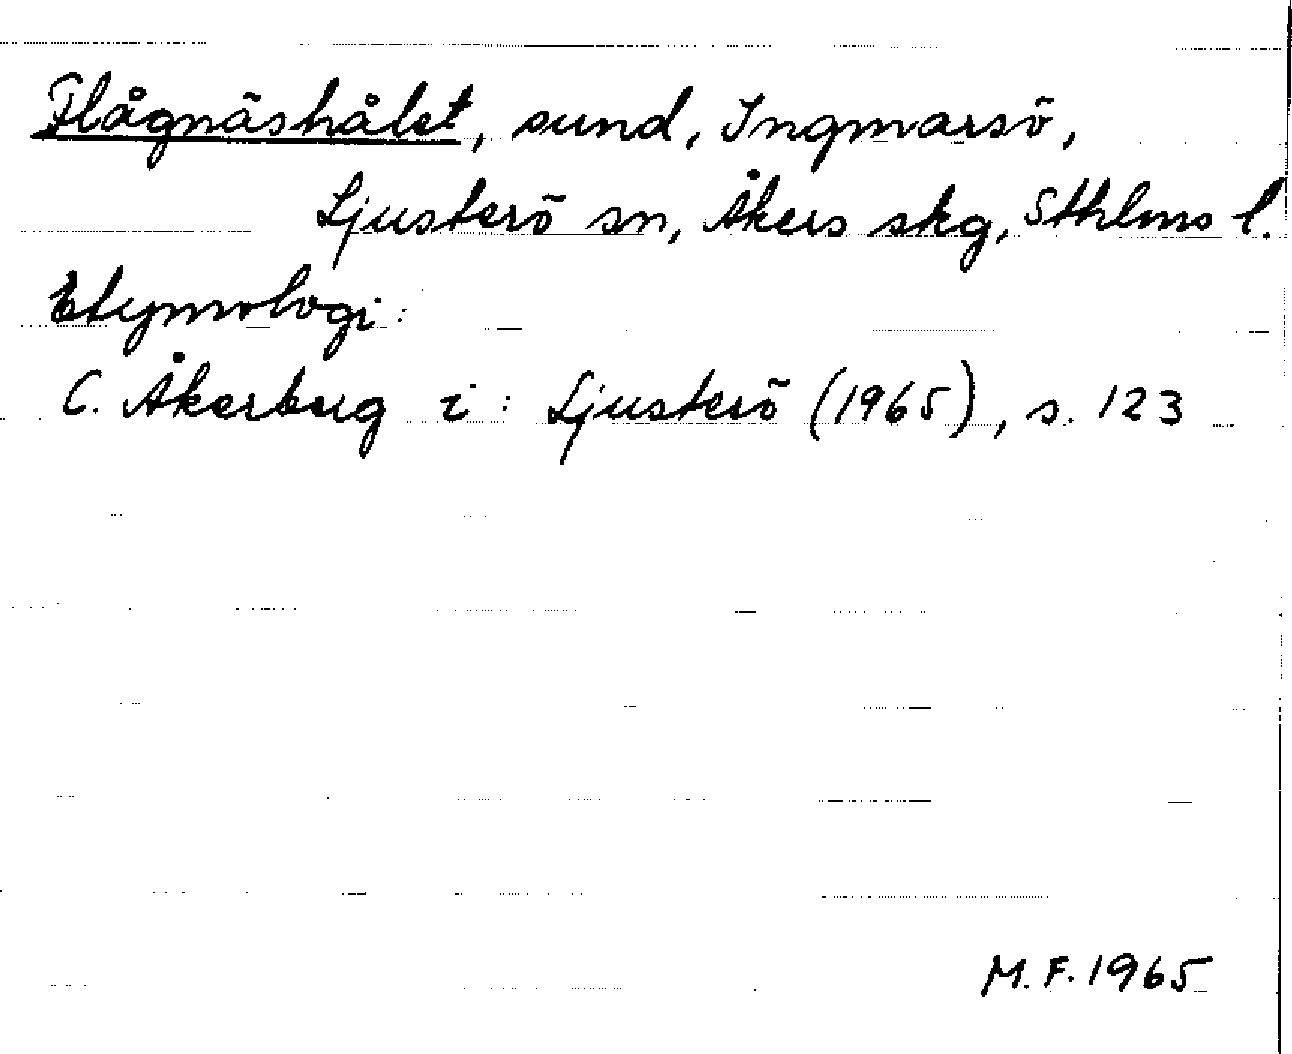 Flågnäshålet, sund, Ingmarsö,
Ljusterö sn, Åkers skg, Sthlms l.
Etymologi:
C. Åkerberg i: Ljusterö (1965), s. 123
M.F. 1965